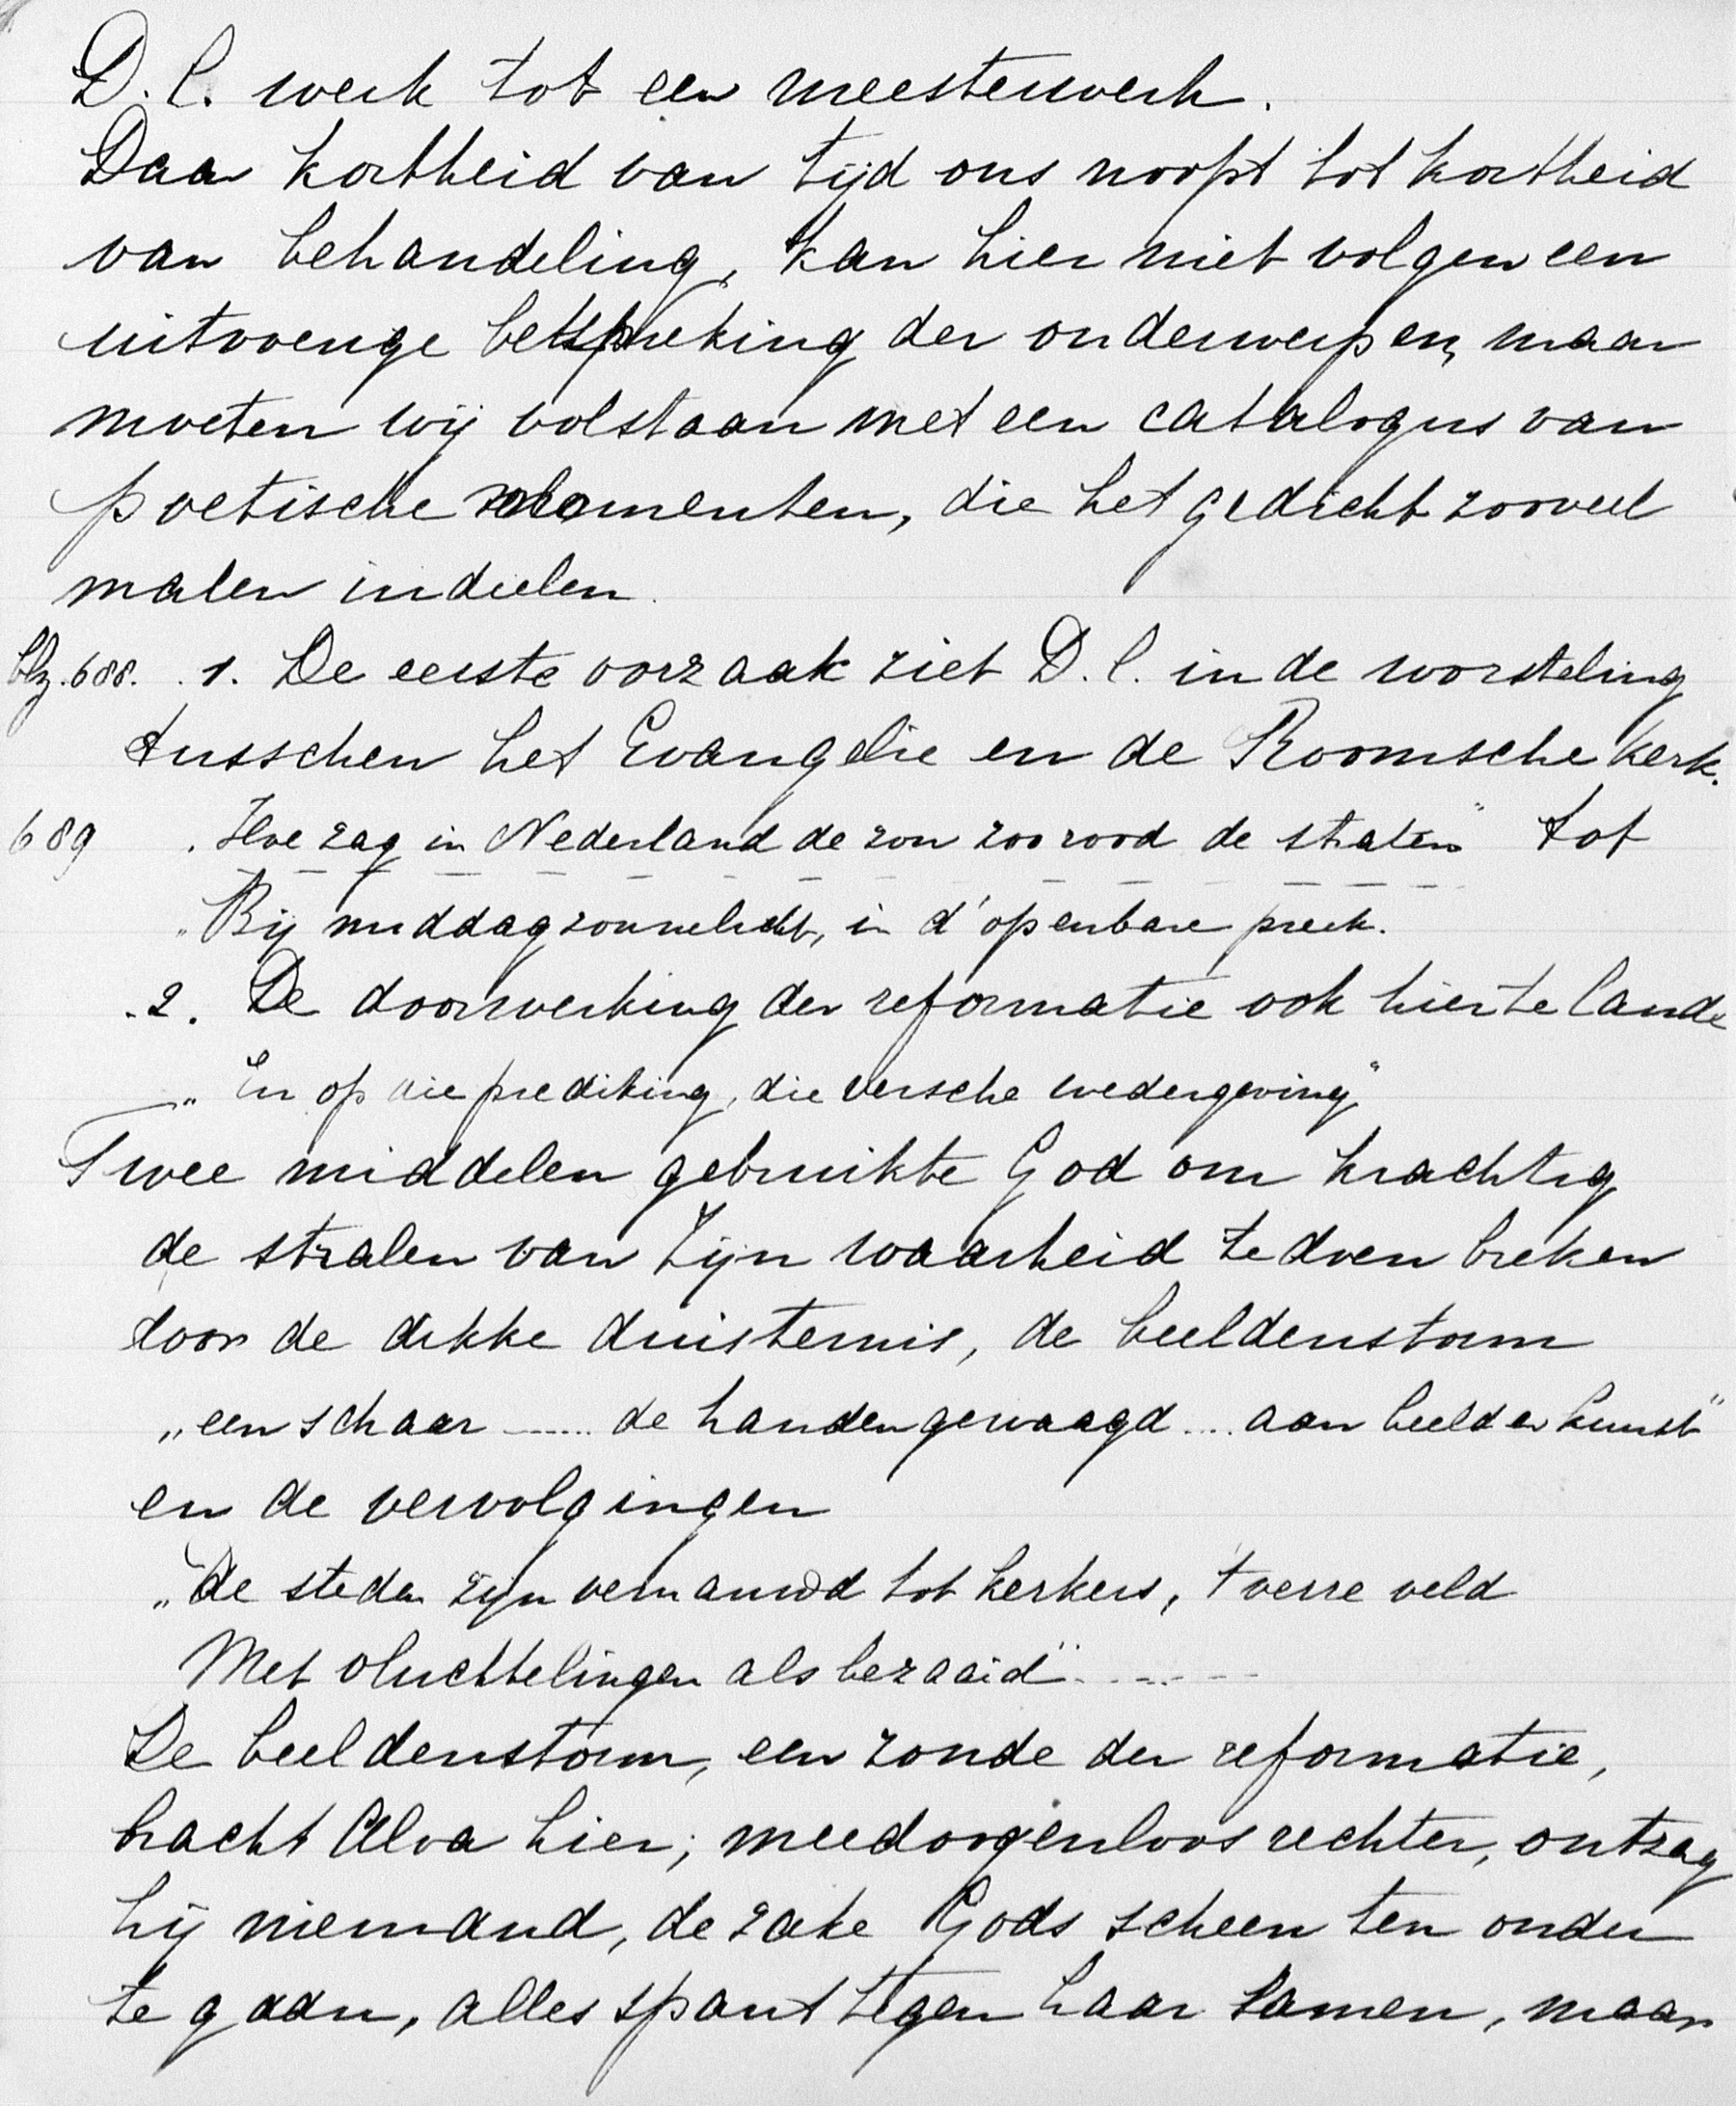 D. C. werk tot een meesterwerk.
Daar kortheid van tijd ons noopt tot kortheid
van behandeling, kan hier niet volgen een
uitvoerige bespreking der onderwerpen, maar
moeten wij volstaan met een catalogus van
poetische momenten, die het gedicht zooveel
malen indeelen.
blz. 688. 1. De eerste oorzaak ziet D. C. in de worsteling
tusschen het Evangelie en de Roomsche kerk.
689 „Hoe zag in Nederland de zon zoo rood de straten" tot
„Bij middagzonnelicht, in d'openbare preek.
2. De doorwerking der reformatie ook hier te lande
„En op die prediking, die versche wedergeving"
Twee middelen gebruikte God om krachtig
de stralen van Zijn waarheid te doen breken
door de dikke duisternis, de beeldenstorm
„een schaar ...... de handen gewaagd .... aan beeld en kunst"
en de vervolgingen
„De steden zijn vernauwd tot kerkers, 't verre veld
Met vluchtelingen als bezaaid" ......
De beeldenstorm, een zonde der reformatie,
bracht Alva hier; meedoogenloos rechter, ontzag
hij niemand, de zake Gods scheen ten onder
te gaan, alles spant tegen haar samen, maar